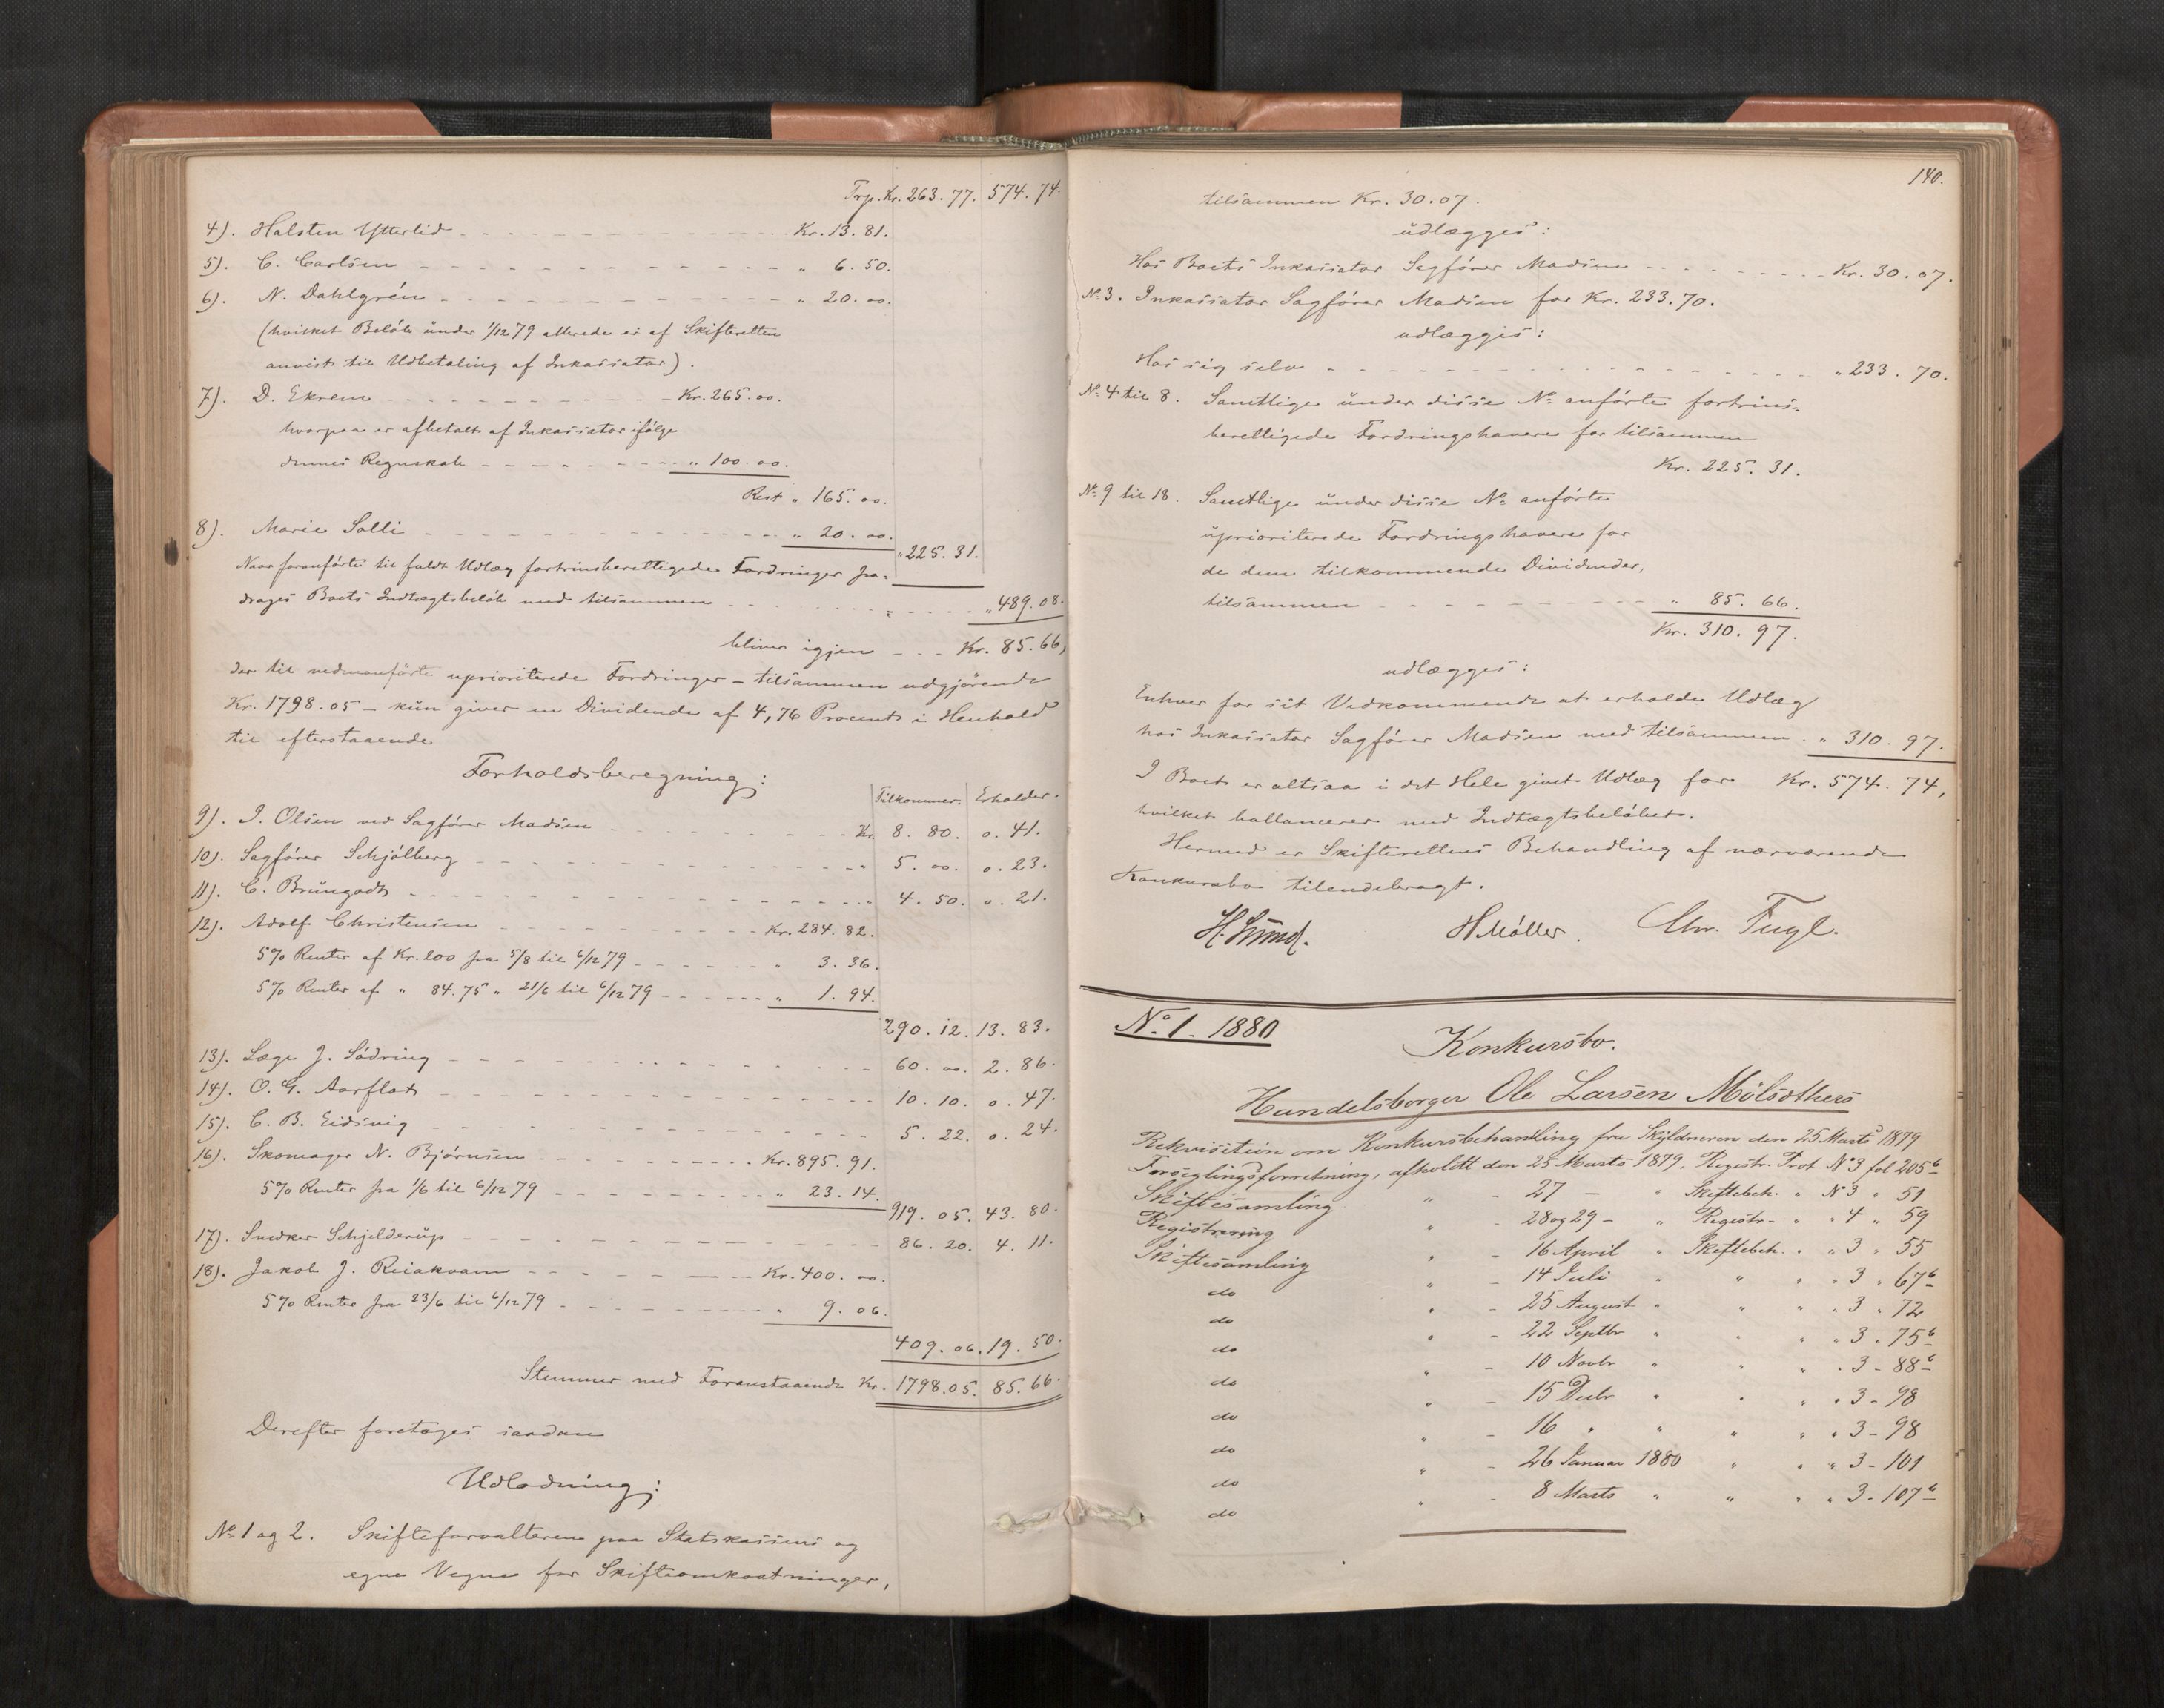 Trp. Kr. 263.77. 574.74.
4). Halsten Ytterlid Kr. 13.81.
5). C. Carlsen " 6.50.
6). N. Dahlgrén " 20.00.
(hvilket Beløb under 1/12 79 allerede er af Skifteretten
anvist til Udbetaling af Inkassator).
7). D. Ekrem Kr. 265.00.
hvorpaa er afbetalt af Inkassator ifølge
dennes Regnskab " 100.00.
Rest " 165.00.
8). Marie Solli " 20.00.
" 225.31.
Naar foranførte til fuldt Udlæg fortrinsberettigede Fordringer fra-
drages Boets Indtægtsbeløb med tilsammen " 489.08.
bliver igjen Kr. 85.66,
der til nedenanførte uprioriterede Fordringer – tilsammen udgjørende
Kr. 1798.05 – kun giver en Dividende af 4,76 Procent i Henhold
til efterstaaende
Forholdsberegning:
Tilkommer. Erholder.
9). I. Olsen ved Sagfører Madsen Kr. 8.80. 0.41.
10). Sagfører Schjølberg " 5.00. 0.23.
11). C. Brüngodt " 4.50. 0.21.
12). Adolf Christensen Kr. 284.82.
5% Renter af Kr. 200 fra 5/8 til 6/12 79 " 3.36.
5% Renter af " 84.75 " 21/6 til 6/12 79 " 1.94.
290.12. 13.83.
13). Læge J. Södring 60.00. 2.86.
14). O. G. Aarflot 10.10. 0.47.
15). C. B. Eidsvig 5.22. 0.24.
16). Skomager N. Bjørnsen Kr. 895.91.
5% Renter fra 1/6 til 6/12 79 " 23.14.
919.05. 43.80.
17). Snedker Schjelderup 86.20. 4.11.
18). Jakob J. Reiakvam Kr. 400.00.
5% Renter fra 23/6 til 6/12 79 " 9.06.
409.06. 19.50.
Stemmer med Foranstaaende Kr. 1798.05. 85.66.
Derefter foretoges saadan
Udlodning:
No. 1 og 2. Skifteforvalteren paa Statskassens og
egne Vegne for Skifteomkostninger,
140.
tilsammen Kr. 30.07.
udlægges:
Hos Boets Inkassator Sagfører Madsen Kr. 30.07.
No. 3. Inkassator Sagfører Madsen for Kr. 233.70.
udlægges:
Hos sig selv " 233.70.
No. 4 til 8. Samtlige under disse No. anførte fortrins-
berettigede Fordringshavere for tilsammen
Kr. 225.31.
No. 9 til 18. Samtlige under disse No. anførte
uprioriterede Fordringshavere for
de dem tilkommende Dividender,
tilsammen " 85.66.
Kr. 310.97.
udlægges:
Enhver for sit Vedkommende at erholde Udlæg
hos Inkassator Sagfører Madsen med tilsammen " 310.97.
I Boet er altsaa i det Hele givet Udlæg for Kr. 574.74,
hvilket ballancerer med Indtægtsbeløbet.
Hermed er Skifterettens Behandling af nærværende
Konkursbo tilendebragt.
H. Møller. Chr. Fugl.
No. 1. 1880
Konkursbo.
Handelsborger Ole Larsen Mölsöthers
Rekvisition om Konkursbehandling fra Skyldneren den 25 Marts 1879
Forseglingsforretning, afholdt den 25 Marts 1879, Registr. Prot No 3 fol 205b
Skiftesamling " - 27 - " Skiftebeh. " No 3 " 51
Registrering " - 28 og 29 - " Registr. - " " 4 " 59
Skiftesamling " - 16 April " Skiftebeh. " " 3 " 55
do " - 14 Juli " " " " 3 " 67b
do " - 25 August " " " " 3 " 72
do " - 22 Septbr " " " " 3 " 75b
do " - 10 Novbr " " " " 3 - 88b
do " - 15 Decbr " " " " 3 - 98
do " - 16 " " " " " 3 - 98
do " - 26 Januar 1880 " " " 3 - 101
do " - 8 Marts " " " " 3 - 107b